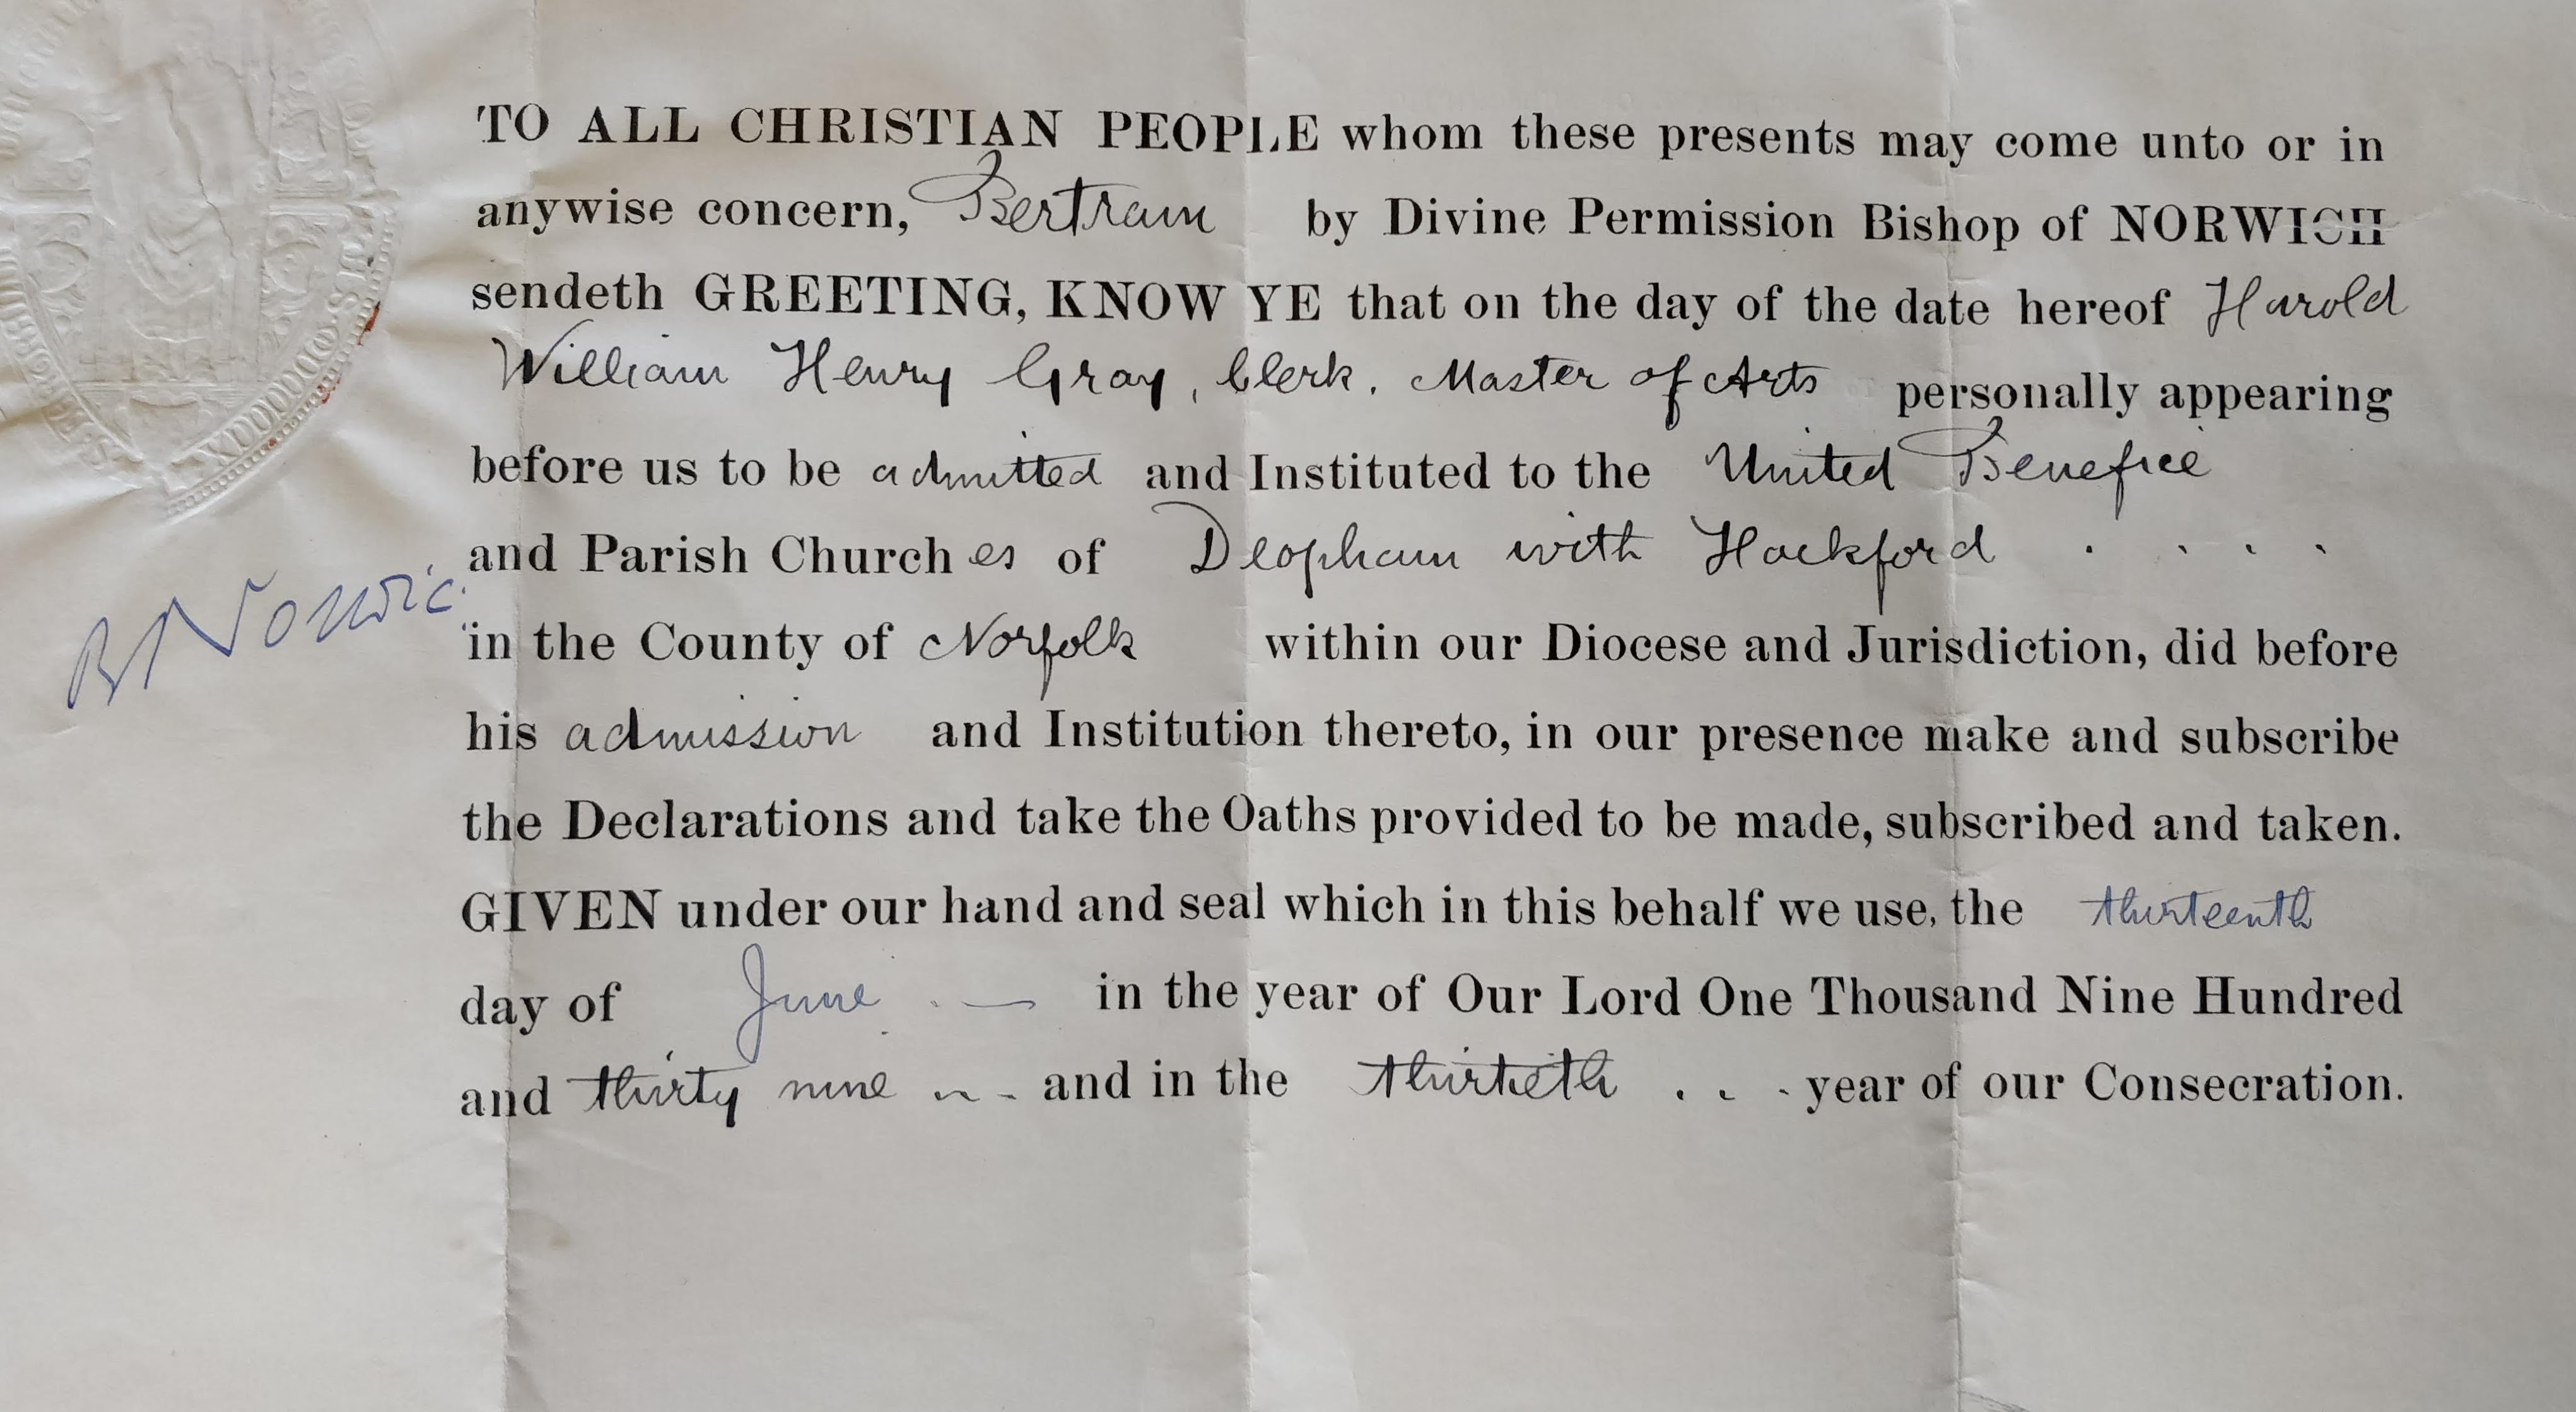 TO ALL CHRISTIAN PEOPLE whom these presents may come unto or in
anywise concern, Bertram by Divine Permission Bishop of NORWICH
sendeth GREETING, KNOW YE that on the day of the date hereof Harold
William Henry Gray, Clerk, Master of Arts personally appearing
before us to be admitted and Instituted to the United Benefice
and Parish Churches of Deopham with Hackford
B Norvic:
in the County of Norfolk within our Diocese and Jurisdiction, did before
his admission and Institution thereto, in our presence make and subscribe
the Declarations and take the Oaths provided to be made, subscribed and taken.
GIVEN under our hand and seal which in this behalf we use, the thirteenth
day of June in the year of Our Lord One Thousand Nine Hundred
and thirty nine and in the thirtieth year of our Consecration.